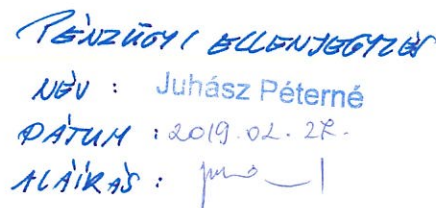 PÉNZÜGYI ELLENJEGYZÉS
NÉV : Juhász Péterné
DÁTUM : 2019.02.27.
ALÁÍRÁS :